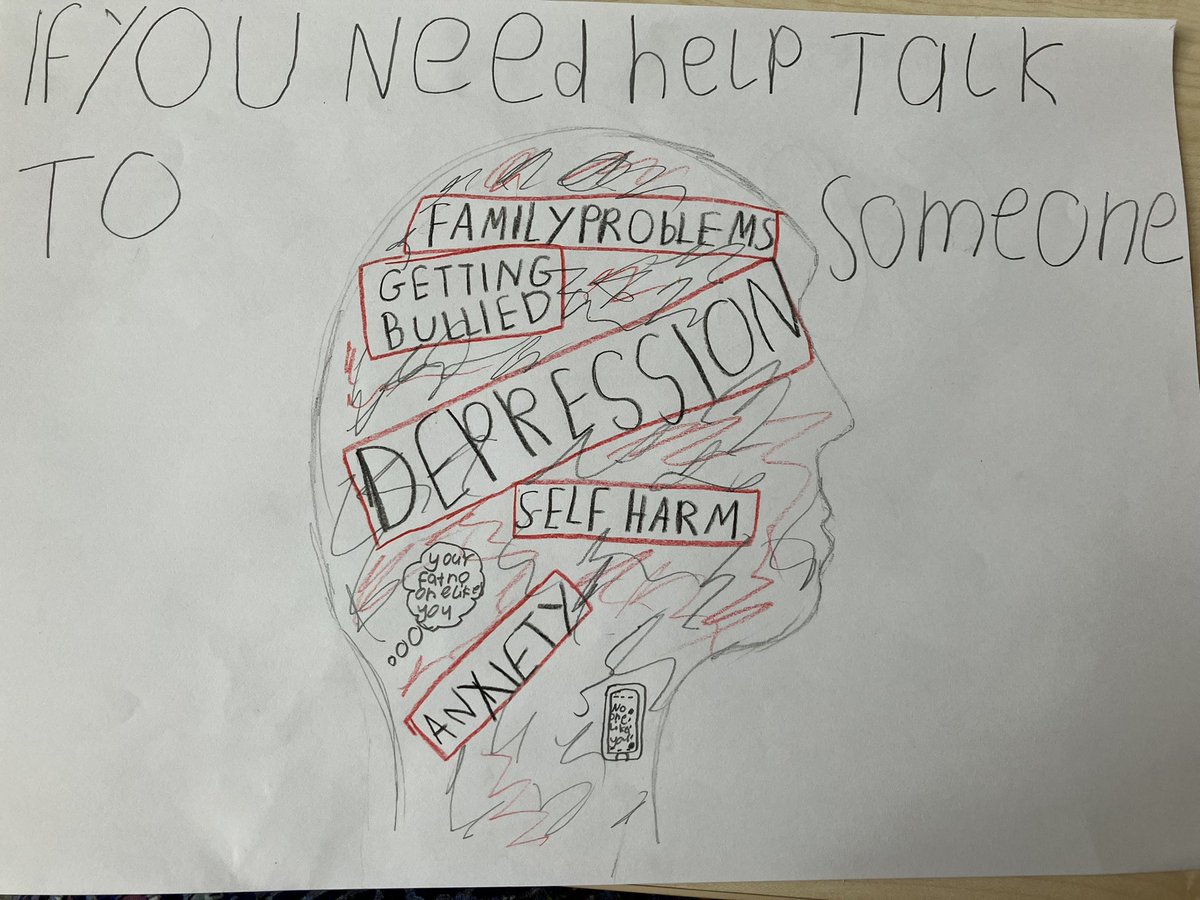 IF YOU Need help Talk
TO someone
FAMILY PROBLEMS
GETTING
BULLIED
DEPRESSION
SELF HARM
your
fat no
one likes
you
ANXIETY
No
one
likes
you!